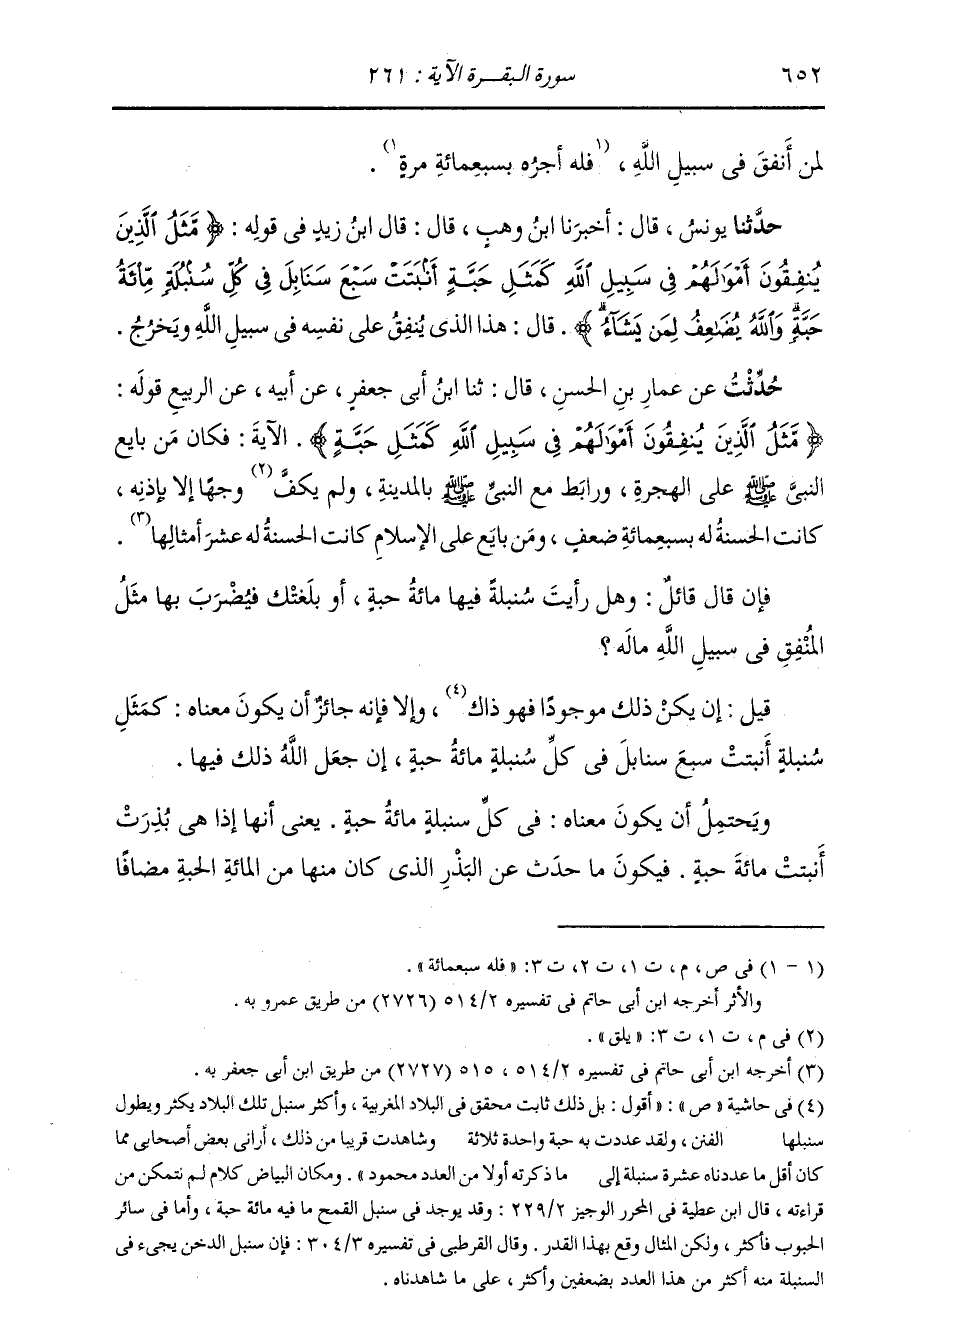 ٦٥٢ سورة البقرة الآية : ٢٦١
لمن أَنفقَ فى سبيلِ اللَّهِ ، (١فله أجرُه بسبعِمائةِ مرةٍ١) .
حدَّثنا يونسُ ، قال : أخبرَنا ابنُ وهبٍ ، قال : قال ابنُ زيدٍ فى قولِه : ﴿ مَّثَلُ ٱلَّذِينَ
يُنفِقُونَ أَمْوَٰلَهُمْ فِى سَبِيلِ ٱللَّهِ كَمَثَلِ حَبَّةٍ أَنۢبَتَتْ سَبْعَ سَنَابِلَ فِى كُلِّ سُنۢبُلَةٍ مِّا۟ئَةُ
حَبَّةٍۗ وَٱللَّهُ يُضَٰعِفُ لِمَن يَشَآءُۗ ﴾ . قال : هذا الذى يُنفِقُ على نفسِه فى سبيلِ اللَّهِ ويَخرُجُ .
حُدِّثْتُ عن عمارِ بنِ الحسنِ ، قال : ثنا ابنُ أبى جعفرٍ ، عن أبيه ، عن الربيعِ قولَه :
﴿ مَّثَلُ ٱلَّذِينَ يُنفِقُونَ أَمْوَٰلَهُمْ فِى سَبِيلِ ٱللَّهِ كَمَثَلِ حَبَّةٍ ﴾ . الآيةَ : فكان مَن بايع
النبىَّ ﷺ على الهجرةِ ، ورابَط مع النبىِّ ﷺ بالمدينةِ ، ولم يكفَّ(٢) وجهًا إلا بإذنِه ،
كانت الحسنةُ له بسبعِمائةِ ضعفٍ ، ومَن بايَع على الإسلامِ كانت الحسنةُ له عشرَ أمثالِها(٣) .
فإن قال قائلٌ : وهل رأيتَ سُنبلةً فيها مائةُ حبةٍ ، أو بلَغتْك فيُضْرَبَ بها مثَلُ
المُنْفِقِ فى سبيلِ اللَّهِ مالَه ؟
قيل : إن يكنْ ذلك موجودًا فهو ذاك(٤) ، وإلا فإنه جائزٌ أن يكونَ معناه : كمَثَلِ
سُنبلةٍ أَنبتتْ سبعَ سنابلَ فى كلِّ سُنبلةٍ مائةُ حبةٍ ، إن جعَل اللَّهُ ذلك فيها .
ويَحتمِلُ أن يكونَ معناه : فى كلِّ سنبلةٍ مائةُ حبةٍ . يعنى أنها إذا هى بُذِرَتْ
أَنبتتْ مائةَ حبةٍ . فيكونَ ما حدَث عن البَذْرِ الذى كان منها من المائةِ الحبةِ مضافًا
(١ - ١) فى ص، م، ت ١، ت ٢، ت ٣: « فله سبعمائة » .
والأثر أخرجه ابن أبى حاتم فى تفسيره ٥١٤/٢ (٢٧٢٦) من طريق عمرو به .
(٢) فى م، ت ١، ت ٣: « يلق » .
(٣) أخرجه ابن أبى حاتم فى تفسيره ٥١٤/٢ ، ٥١٥ (٢٧٢٧) من طريق ابن أبى جعفر به .
(٤) فى حاشية « ص » : « أقول : بل ذلك ثابت محقق فى البلاد المغربية ، وأكثر سنبل تلك البلاد يكثر ويطول
سنبلها الفنن ، ولقد عددت به حبة واحدة ثلاثة وشاهدت قريبا من ذلك ، أرانى بعض أصحابى مما
كان أقل ما عددناه عشرة سنبلة إلى ما ذكرته أولا من العدد محمود » . ومكان البياض كلام لم نتمكن من
قراءته ، قال ابن عطية فى المحرر الوجيز ٢٢٩/٢ : وقد يوجد فى سنبل القمح ما فيه مائة حبة ، وأما فى سائر
الحبوب فأكثر ، ولكن المثال وقع بهذا القدر . وقال القرطبى فى تفسيره ٣٠٤/٣ : فإن سنبل الدخن يجىء فى
السنبلة منه أكثر من هذا العدد بضعفين وأكثر ، على ما شاهدناه .